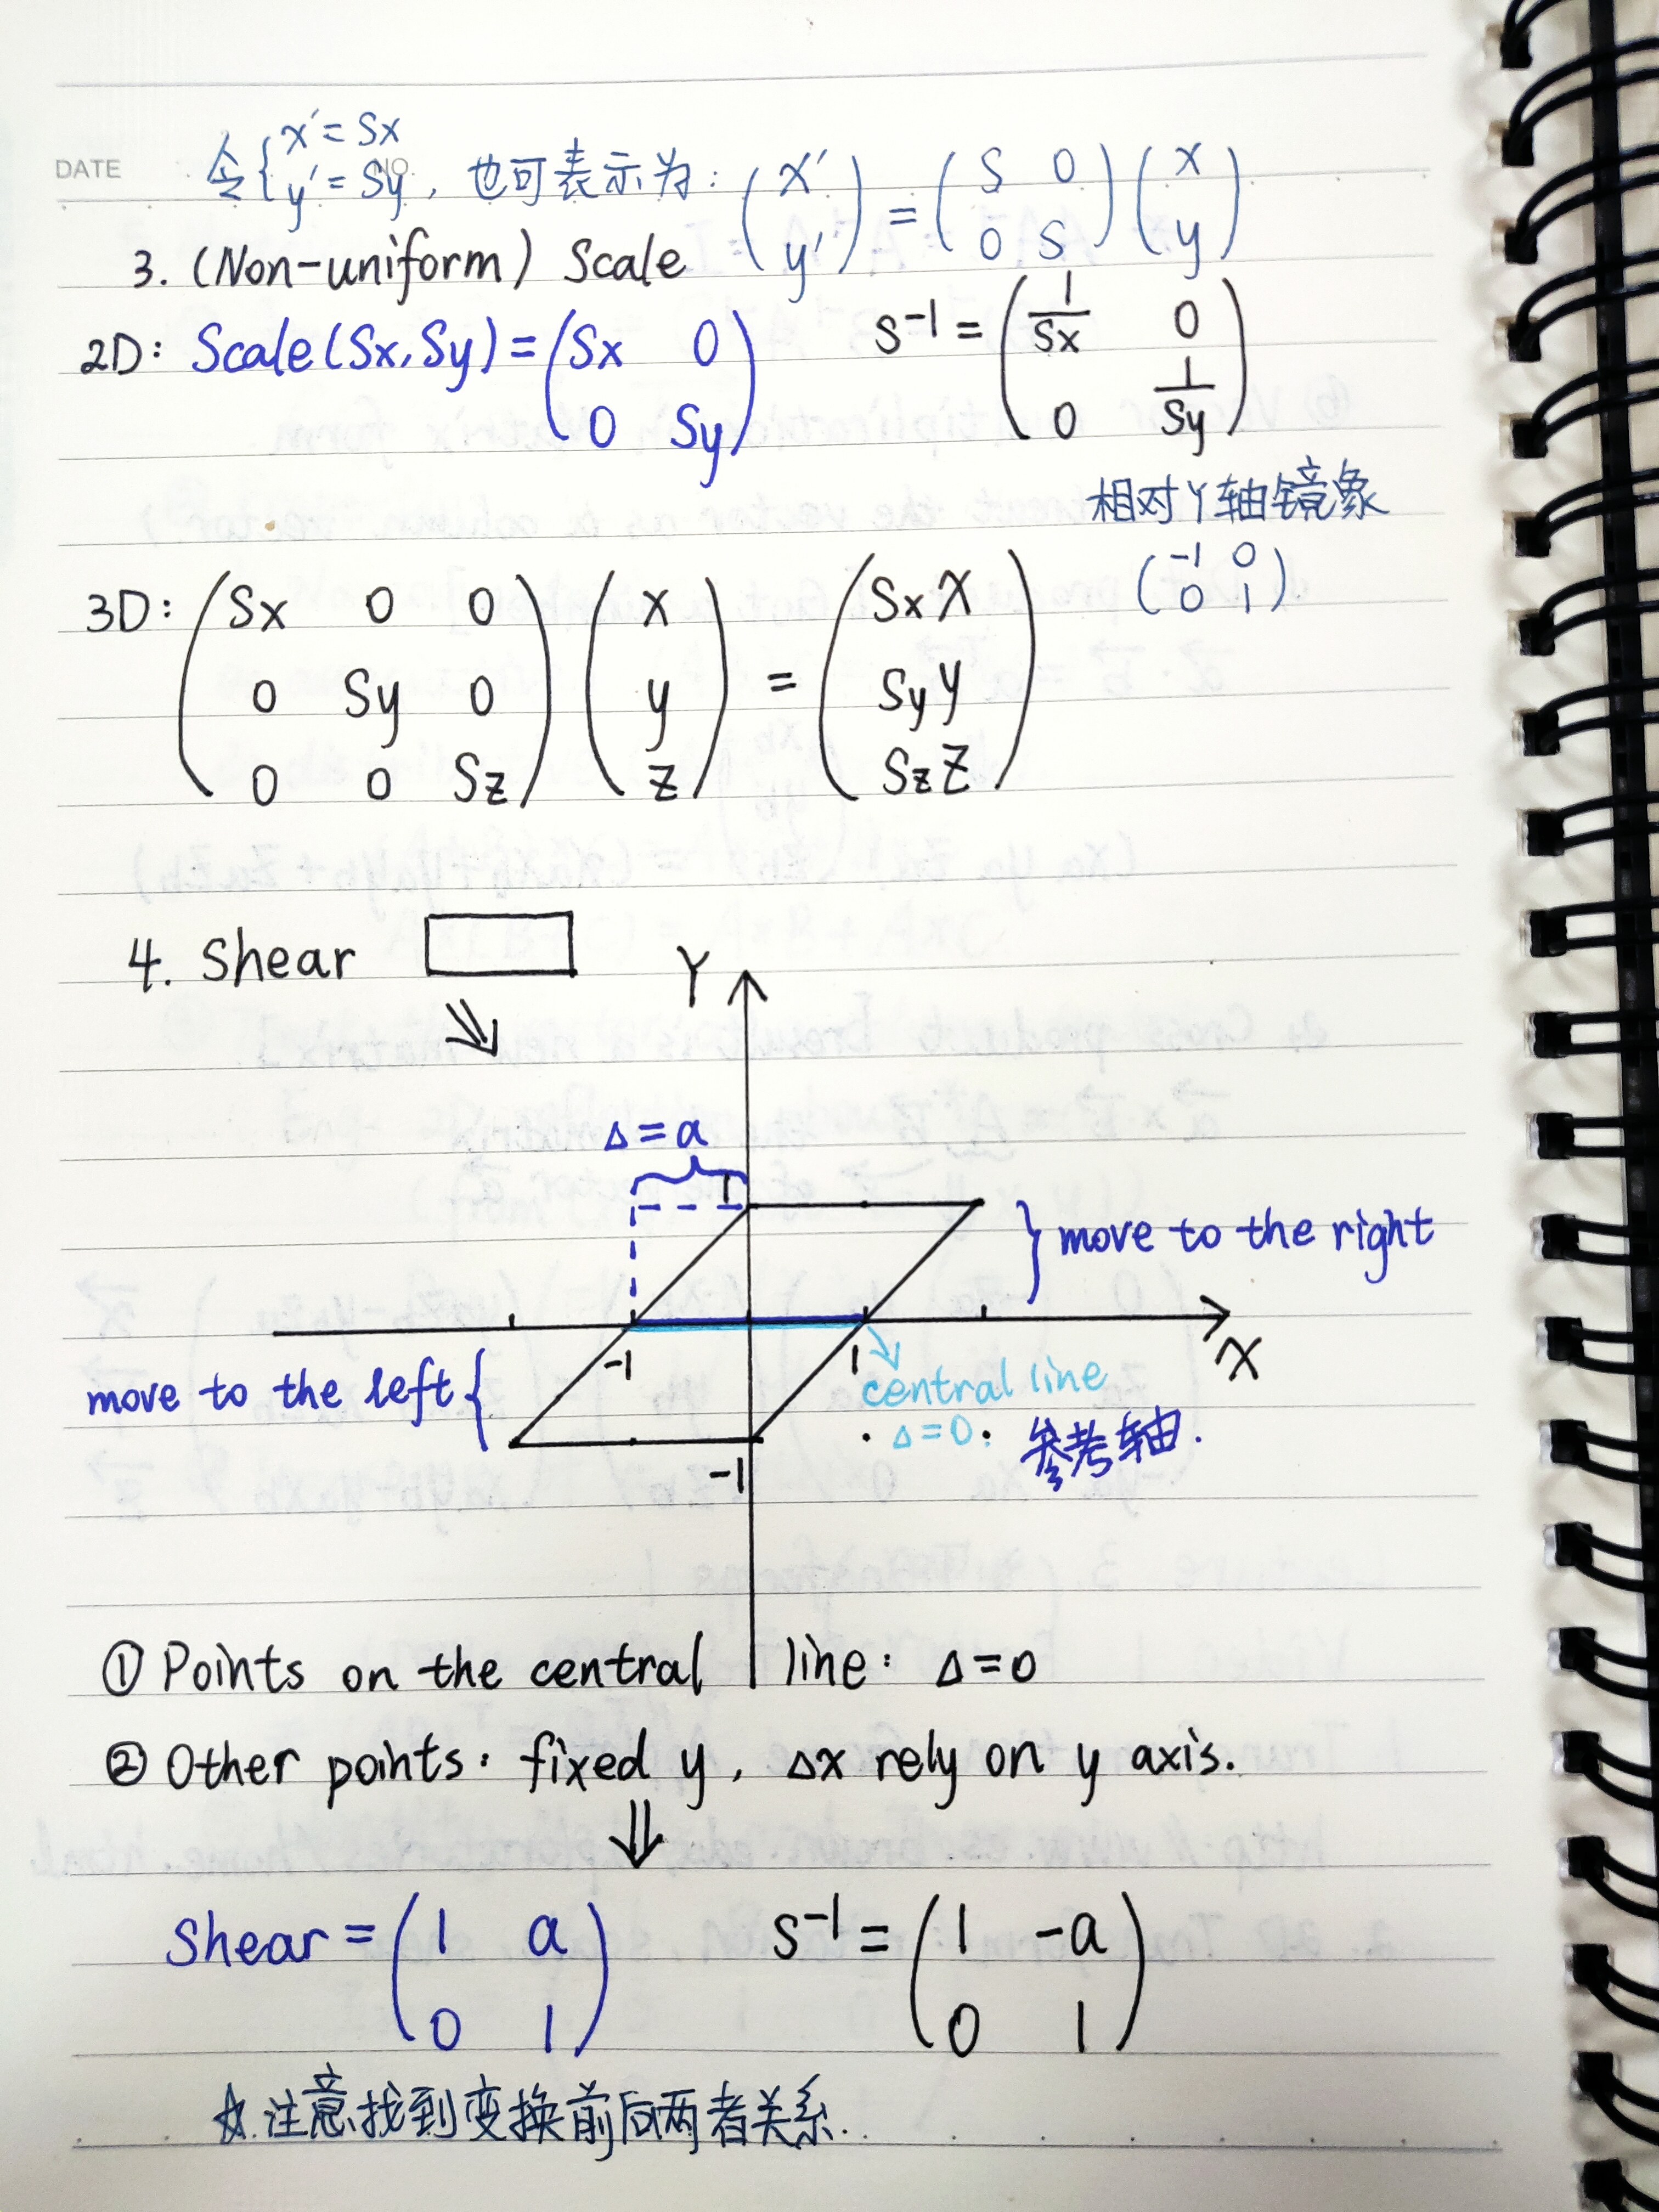 DATE
NO.
令{x'=Sx
y'=Sy, 也可表示为: (x' y') = (S 0 0 S)(x y)
3. (Non-uniform) Scale
2D: Scale(Sx,Sy) = (Sx 0
0 Sy)
S⁻¹ = (1/Sx 0
0 1/Sy)
相对Y轴镜象
(-1 0
0 1)
3D: (Sx 0 0 (x (SxX
0 Sy 0 y = SyY
0 0 Sz) z) SzZ)
4. Shear
Y
Δ=a
1
move to the right
X
-1
1
move to the left
central line
Δ=0: 参考轴.
-1
① Points on the central line: Δ=0
② Other points: fixed y, Δx rely on y axis.
⇓
Shear = (1 a
0 1)
S⁻¹ = (1 -a
0 1)
☆.注意找到变换前后两者关系.